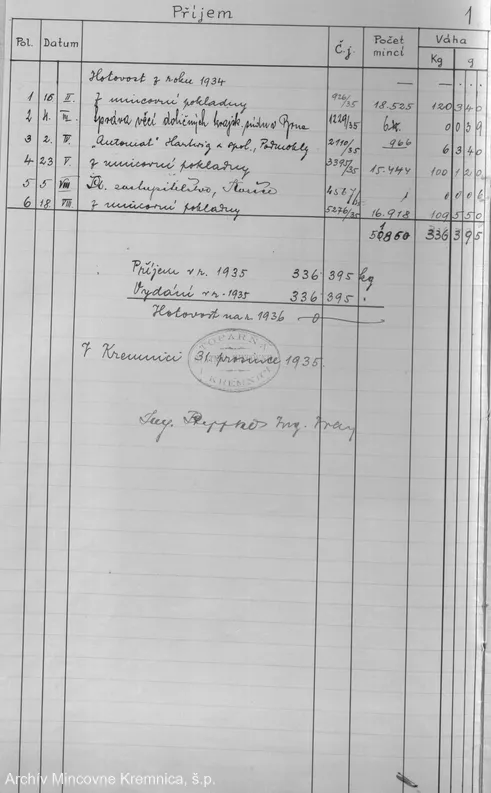 Příjem 1
Pol. Datum Č.j. Počet mincí Váha
Kg g
Hotovost z roku 1934 — — . . .
1 16 II. Z mincovní pokladny 926/35 18.525 120 340
2 4. III. Správa věcí 1229/35 0 039
3 2. IV. "Automat" Hartwig a spol., Podmokly 2110/35 966 6 340
4 23 V. z mincovní pokladny 3395/35 15.444 100 120
5 5 VIII zastupitelstvo, 1 0 006
6 18. VIII. z mincovní pokladny 5276/35 16.918 109 550
336 395
Příjem v r. 1935 336 395 kg
Vydání v r. 1935 336 395 "
Hotovost na r. 1936 —0—
V Kremnici 31. prosince 1935.
KREMNICI
Ing. Ing.
Archív Mincovne Kremnica, š.p.